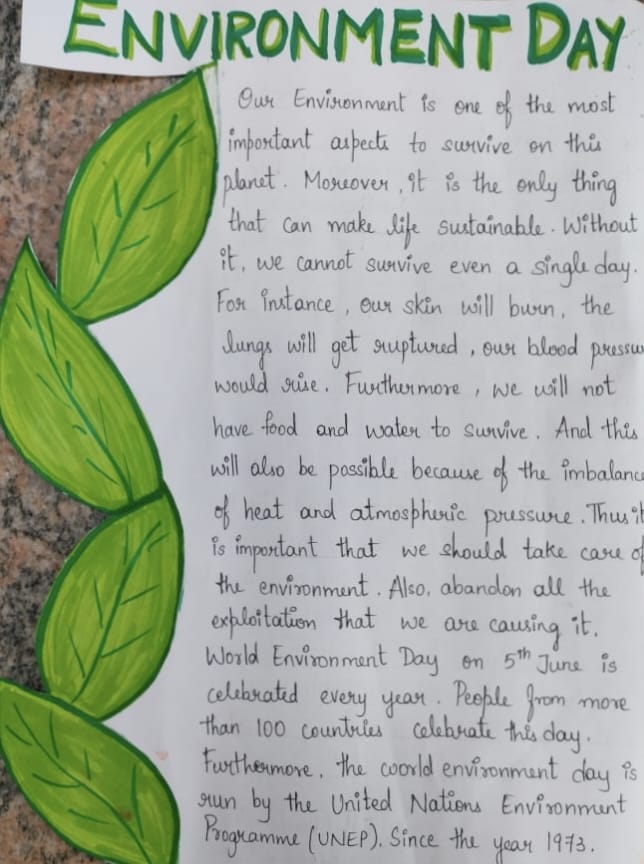 ENVIRONMENT DAY
Our Environment is one of the most
important aspects to survive on this
planet. Moreover, it is the only thing
that can make life sustainable. Without
it, we cannot survive even a single day.
For instance, our skin will burn, the
lungs will get ruptured, our blood pressu
would rise. Furthermore, we will not
have food and water to survive. And this
will also be possible because of the imbalanc
of heat and atmospheric pressure. Thus it
is important that we should take care of
the environment. Also, abandon all the
exploitation that we are causing it.
World Environment Day on 5th June is
celebrated every year. People from more
than 100 countries celebrate this day.
Furthermore, the world environment day is
run by the United Nations Environment
Programme (UNEP). Since the year 1973.